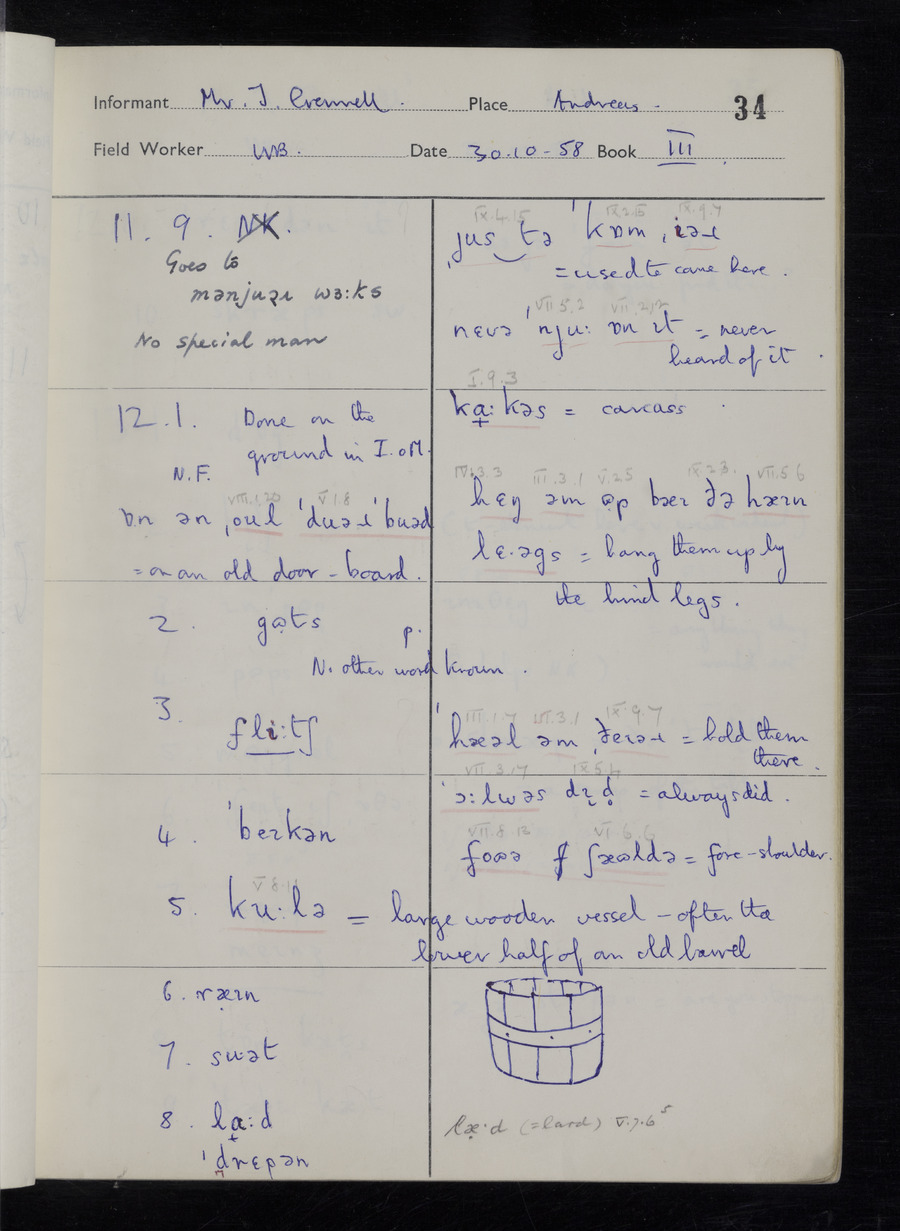 Informant Mr. J. Crennell. Place Andreas - 34
Field Worker WB. Date 30.10-58 Book III
11. 9. NK.
Goes to
mənjuəɪ wɜ:ks
No special man
12.1. Done on the
ground in I.oM.
N.F.
VIII.1.20 V.1.8
ɒn ən ˌoul ˈduəɹ ˈbuəd
= on an old door-board.
2. gɷts
p.
No other word known.
3. fli:tʃ
4. ˈbeɪkən
V.8.
5. ku:lə = large wooden vessel - often the
lower half of an old barrel
6. ræɪn
7. suət
8. la:d
ˈdrɛpən
IX.4.15 IX.3.15 IX.9.7
ˌjus tə ˈkɒm ˌiəɹ
= used to come here.
VII.5.2 VII.2.2
nɛvə ˈnju: ɒn ɪt = never
heard of it.
I.9.3
ka:kəs = carcass
IV.3.3 III.3.1 V.2.5 IX.2.3. VII.5.6
hɛŋ əm ɷp bæɪ ðə hæɪn
lɛ·əgs = hang them up by
the hind legs.
III.1.7 III.3.1 IX.9.7
ˈhæəl əm ˌðeɪəɹ = hold them
there.
VII.3.17 IX.5.4
ˈɔ:lwəs dɪd = always did.
VII.8.13 VI.6.6
foɷə ʃɷəldə = fore-shoulder.
læ·d (=lard) V.7.6⁵